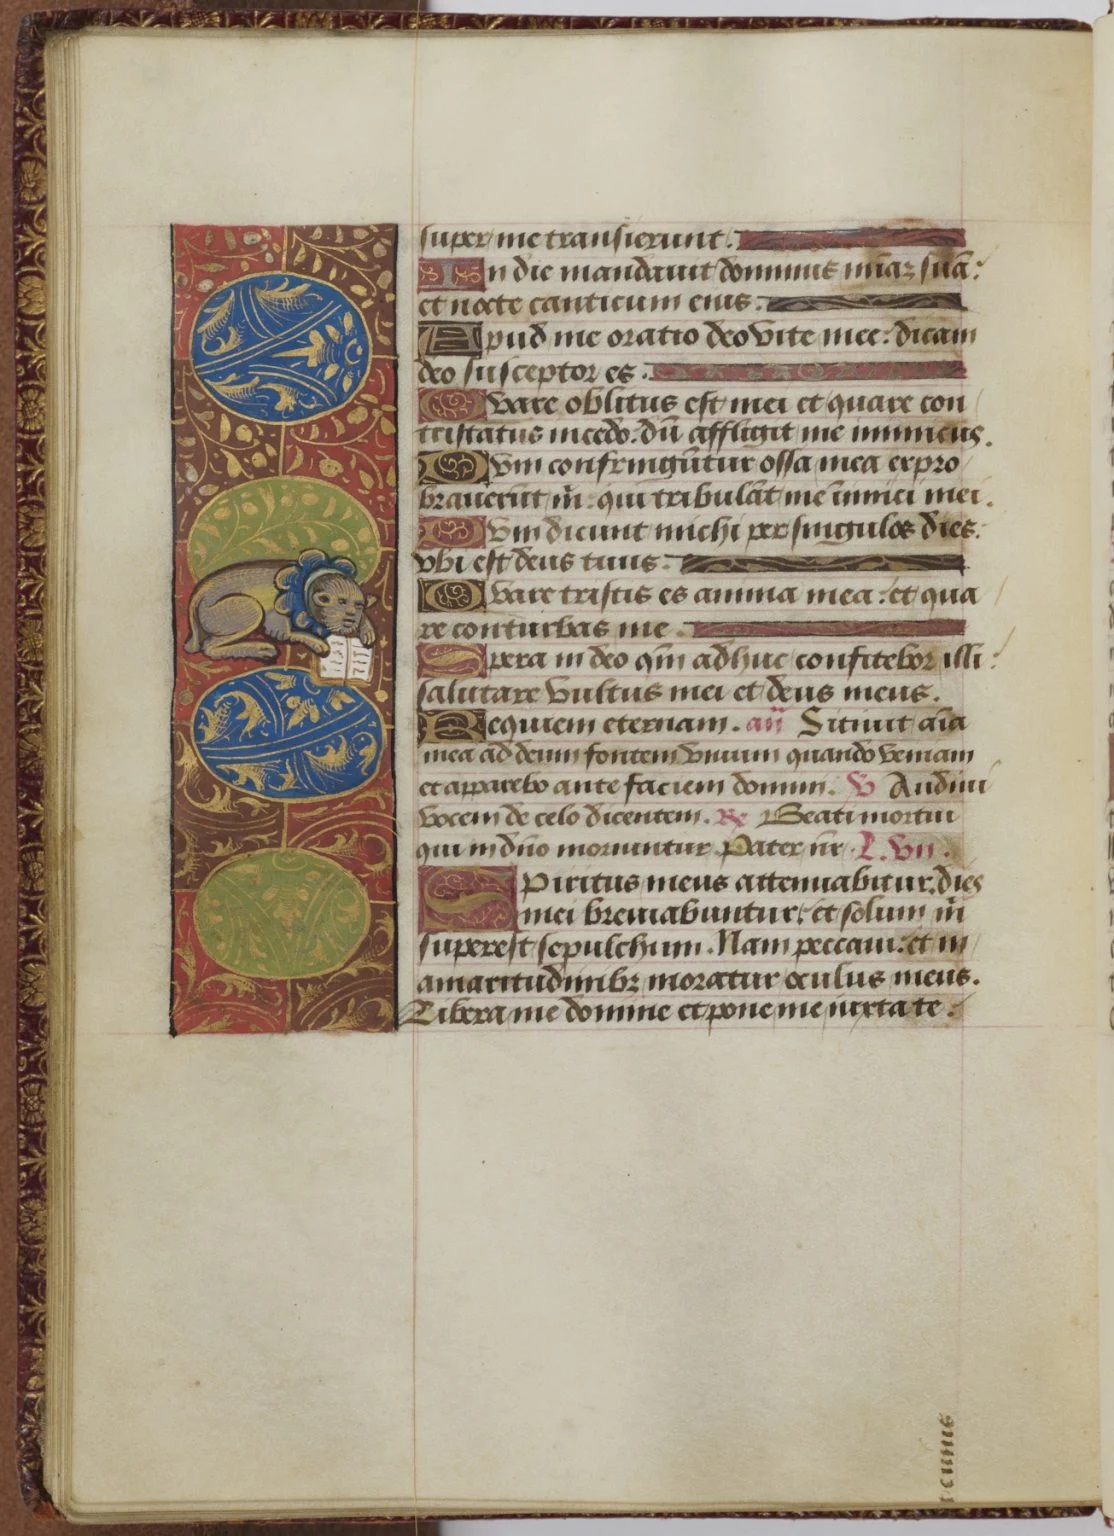 super me transierunt.
In die mandavit dominus mīaꝫ suā:
et nocte canticum eius:
Apud me oratio deo vite mee: dicam
deo susceptor es:
Quare oblitus est mei et quare con
tristatus incedo: dū affligit me inimicus.
Dum confringūtur ossa mea expro
braverūt m̄: qui tribulāt me inimici mei.
Dum dicunt michi per singulos dies:
vbi est deus tuus:
Quare tristis es anima mea: et qua
re conturbas me.
Spera in deo qm̄ adhuc confitebor illi:
salutare vultus mei et deus meus.
Requiem eternam. an̄ Sitiuit aīa
mea ad deum fontem viuum quando veniam
et apparebo ante faciem domini. V Audiui
vocem de celo dicentem. Re Beati mortui
qui in dn̄o moriuntur. Pater nr̄. L. vii.
Spiritus meus attenuabitur. dies
mei breuiabuntur: et solum m̄
superest sepulchrum. Nam peccaui: et in
amaritudinibꝫ moratur oculus meus.
Libera me domine et pone me iuxta te: